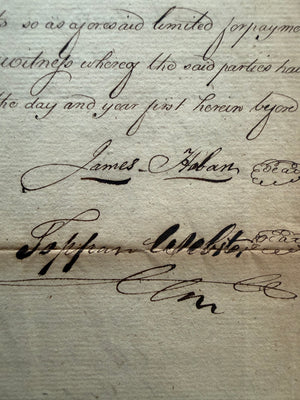 so as aforesaid limited for payme
witness whereof the said parties ha
the day and year first herein befo
James Hoban Seal
Toppan Webster Seal